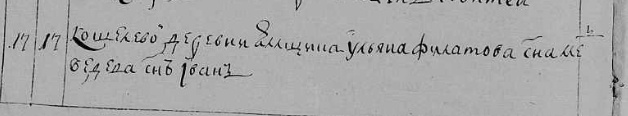 17 17 Кошелевой деревни ямщика Ульяна Филатова сна ме
ведева снъ Иванъ